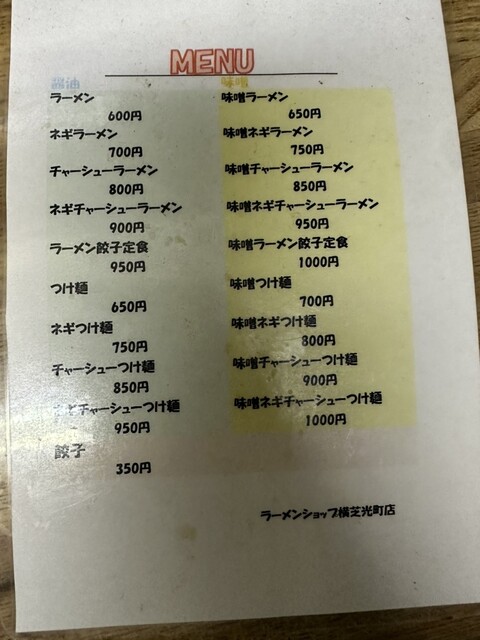 MENU
味噌
ラーメン
600円
ネギラーメン
700円
チャーシューラーメン
800円
ネギチャーシューラーメン
900円
ラーメン餃子定食
950円
つけ麺
650円
ネギつけ麺
750円
チャーシューつけ麺
850円
チャーシューつけ麺
950円
餃子
350円
味噌ラーメン
650円
味噌ネギラーメン
750円
味噌チャーシューラーメン
850円
味噌ネギチャーシューラーメン
950円
味噌ラーメン餃子定食
1000円
味噌つけ麺
700円
味噌ネギつけ麺
800円
味噌チャーシューつけ麺
900円
味噌ネギチャーシューつけ麺
1000円
ラーメンショップ横芝光町店